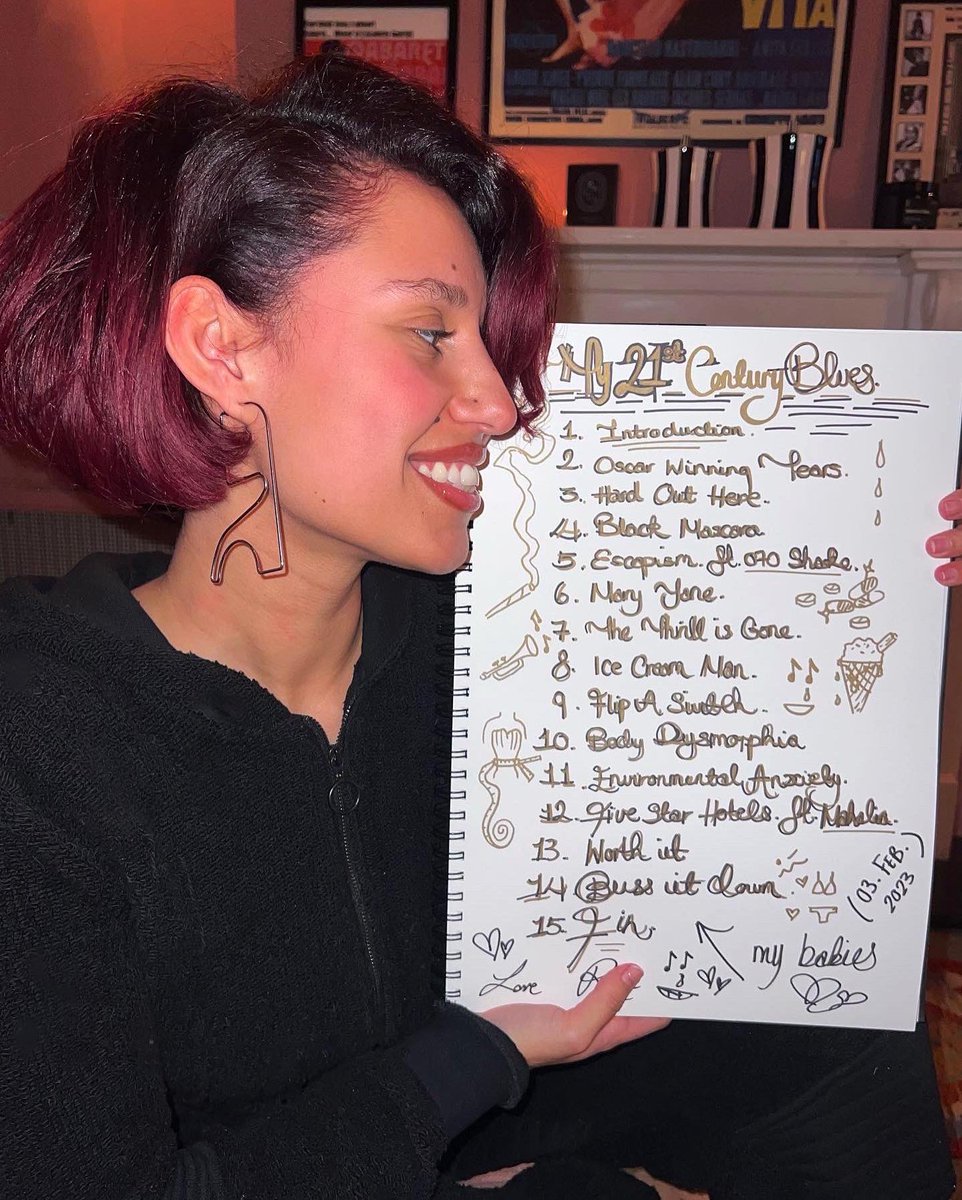 CABARET
VITA
My 21st Century Blues.
1. Introduction.
2. Oscar Winning Tears.
3. Hard Out Here.
4. Black Mascara
5. Escapism. ft. 070 Shake.
6. Mary Jane.
7. The Thrill is Gone.
8. Ice Cream Man.
9. Flip A Switch.
10. Body Dysmorphia
11. Environmental Anxiety.
12. Five Star Hotels. ft. Mahalia.
13. Worth it
14. Buss it down.
15. Fin.
(03. FEB. 2023)
my babies
Love